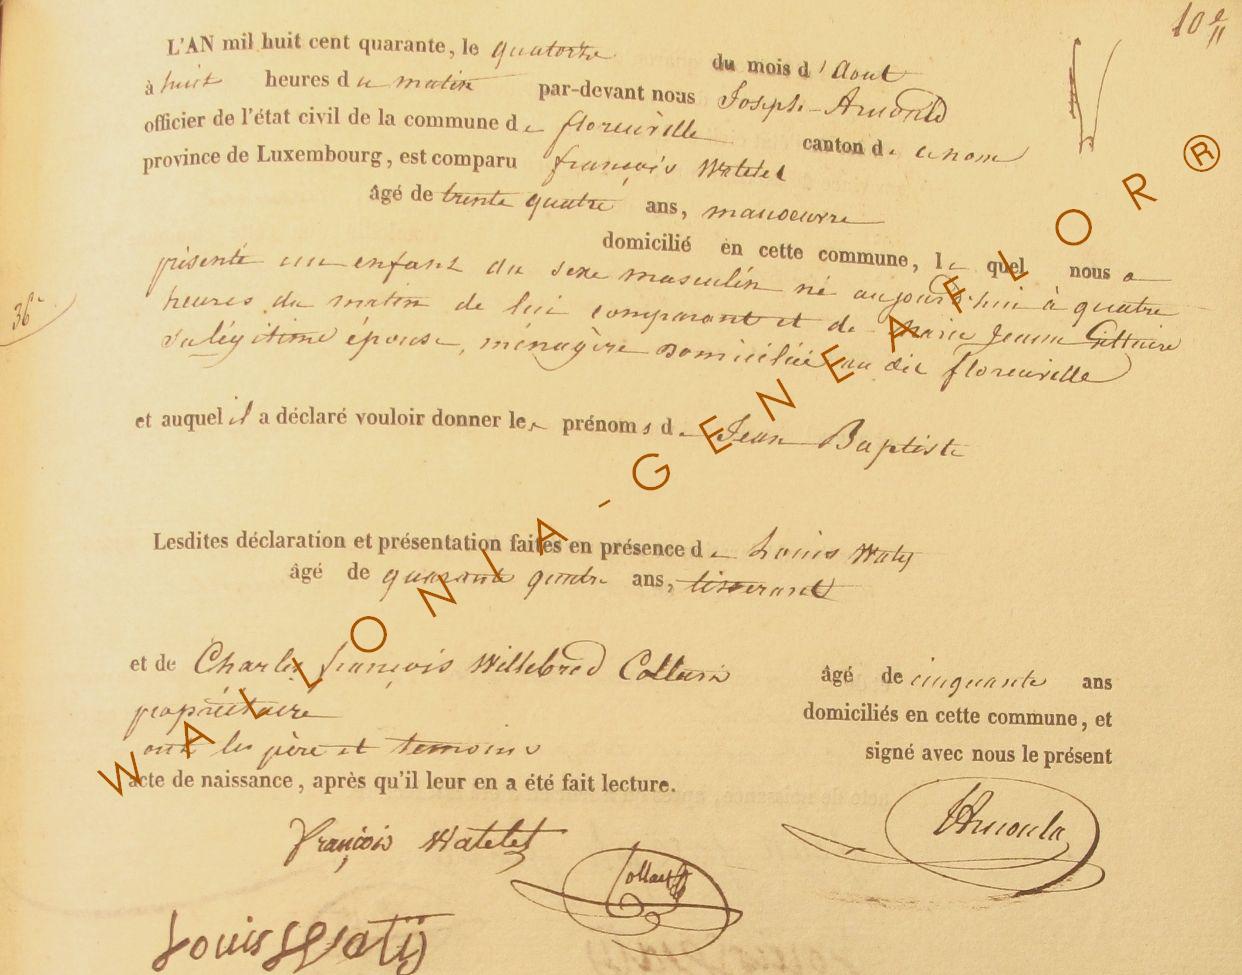 10e
L'AN mil huit cent quarante, le quatorze du mois d'Aout
à huit heures du matin par-devant nous Joseph Arnould
officier de l'état civil de la commune de florenville canton de
province de Luxembourg, est comparu françois Watelet
âgé de trente quatre ans, manoeuvre
domicilié en cette commune, lequel nous a
présenté un enfant du sexe masculin né aujourd'hui à quatre
heures du matin de lui comparant et de marie Jeanne
sa légitime épouse, ménagère domiciliée au dit florenville
36e
et auquel il a déclaré vouloir donner les prénoms de Jean Baptiste
Lesdites déclaration et présentation faites en présence de Louis Waty
âgé de quarante quatre ans, tisserant
et de Charles françois Willebrod Collard âgé de cinquante ans
propriétaire domiciliés en cette commune, et
ont les père et temoins signé avec nous le présent
acte de naissance, après qu'il leur en a été fait lecture.
françois Watelet
Collard
JArnould
Louis Watÿ
WALLONIA-GENEAFLOR®